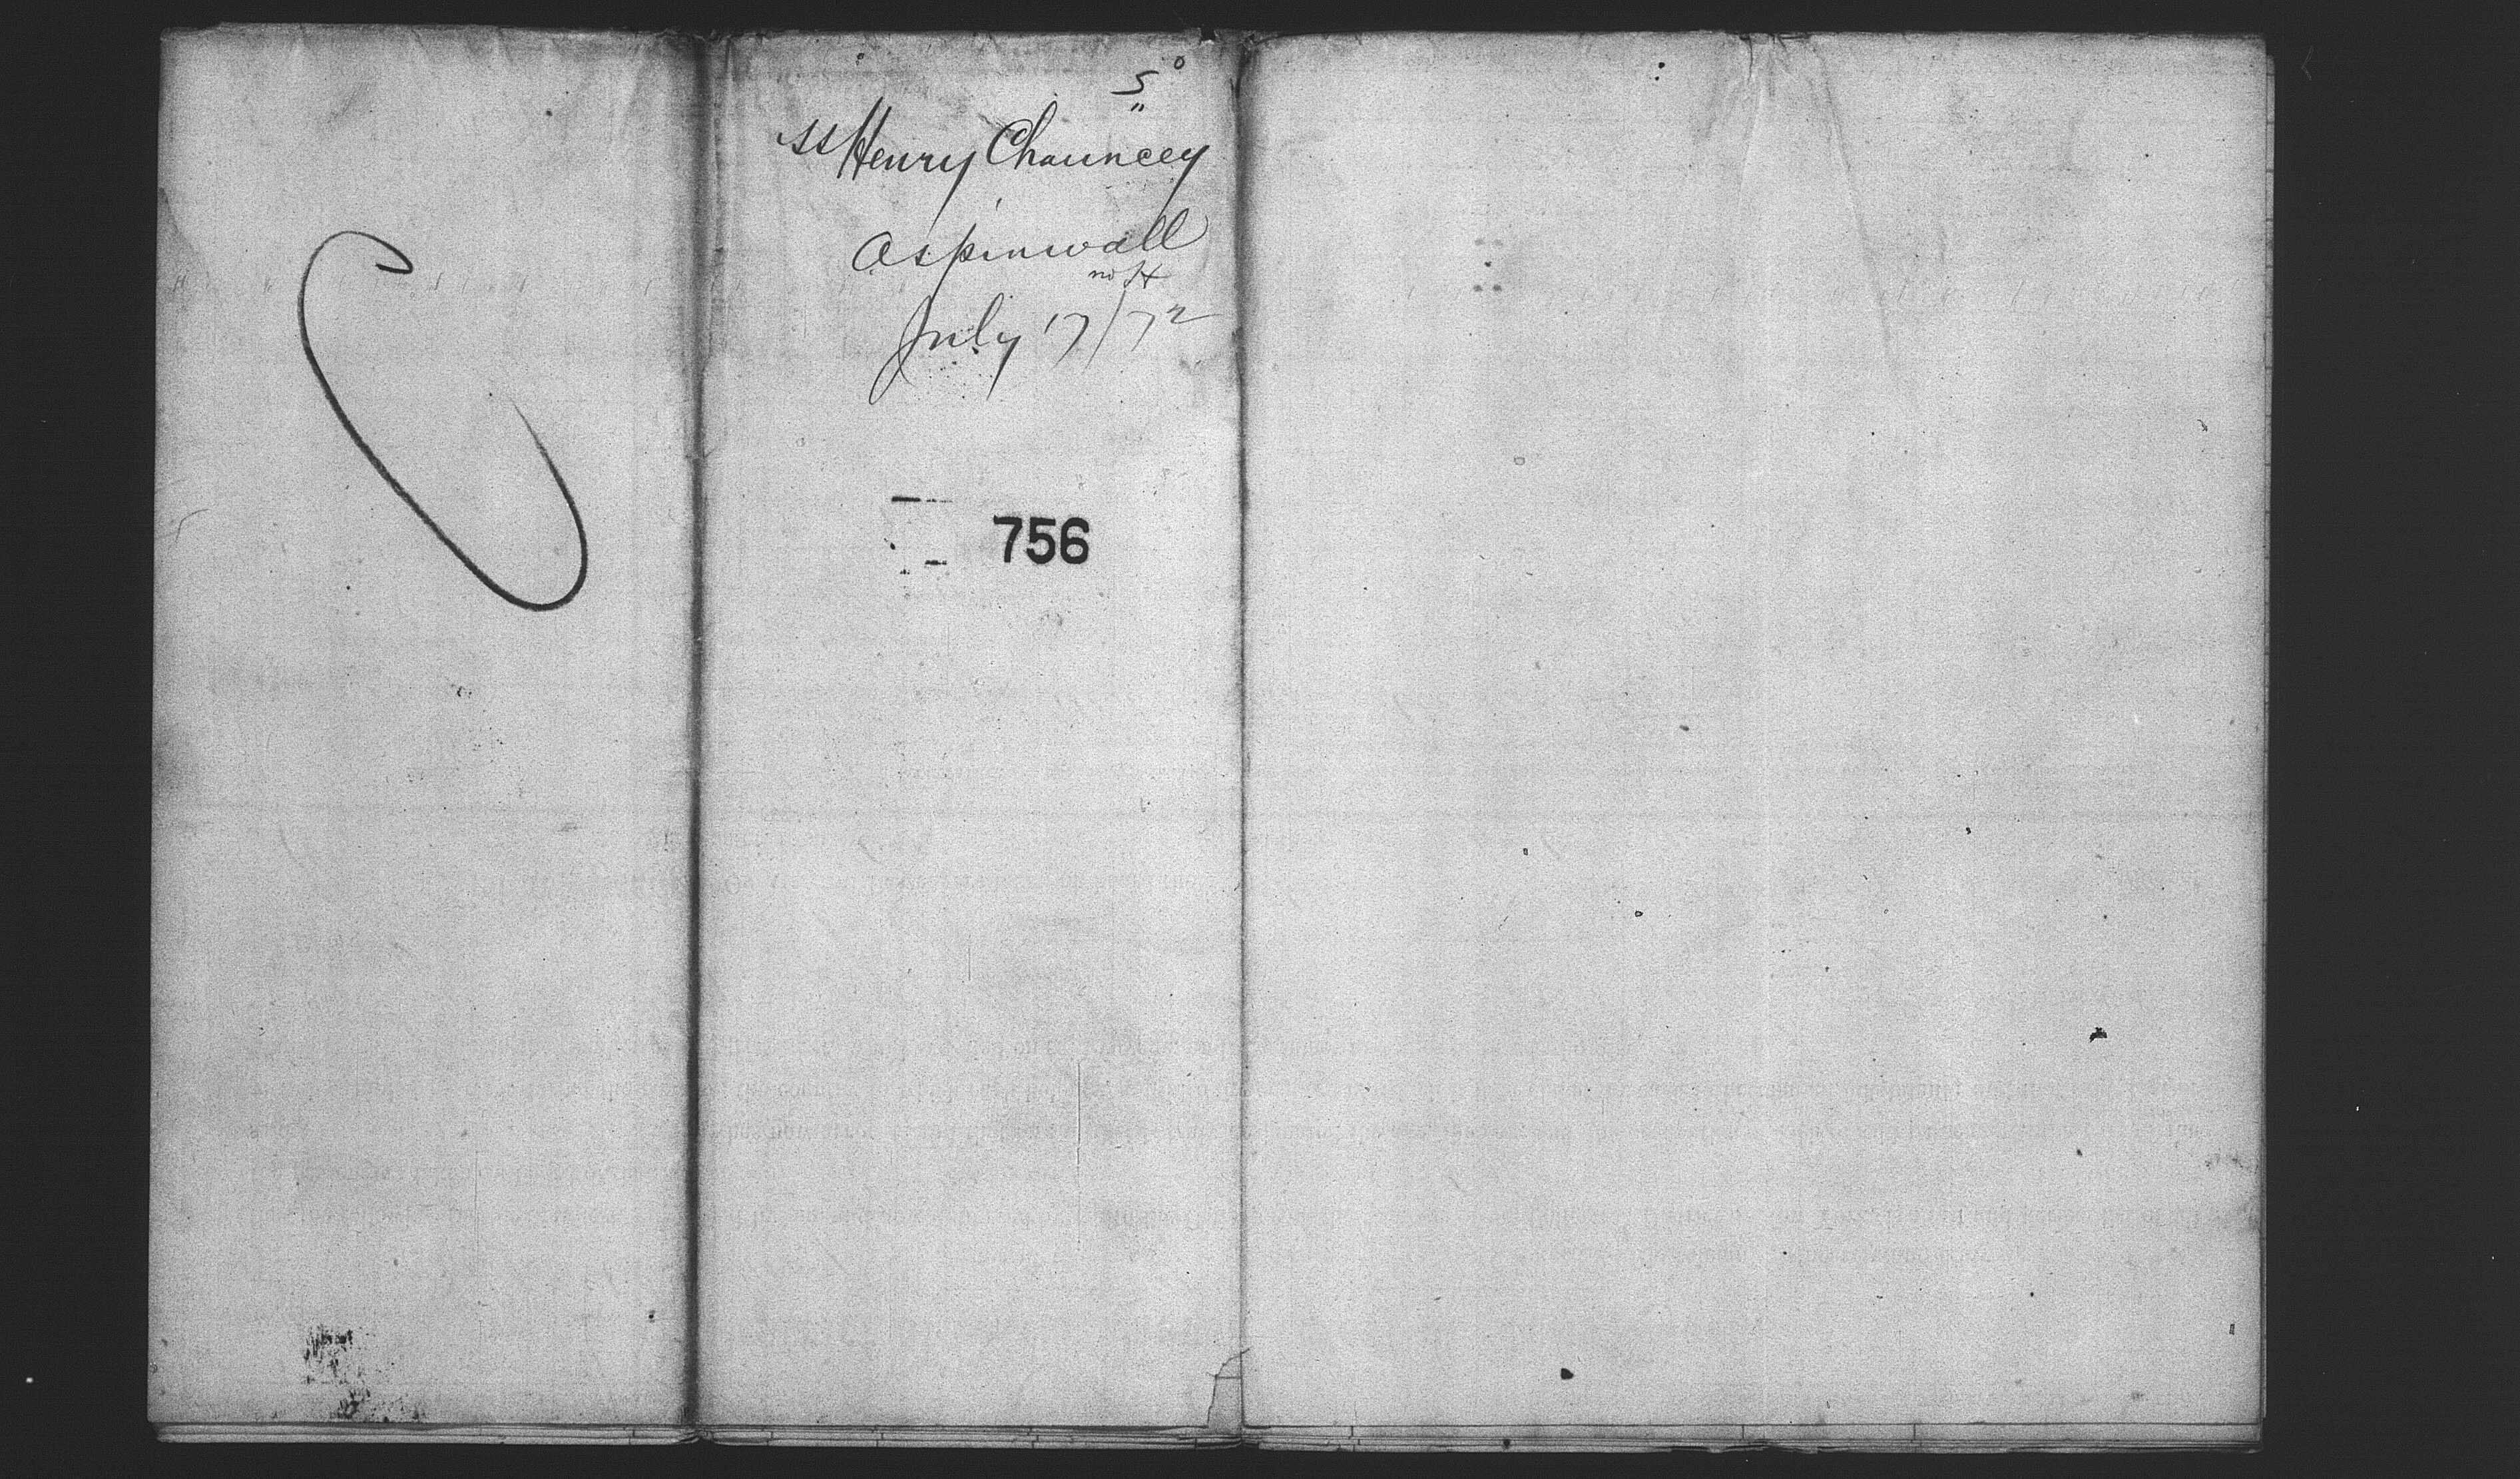 5
SS Henry Chauncey
Aspinwall
no H
July 17/72
756